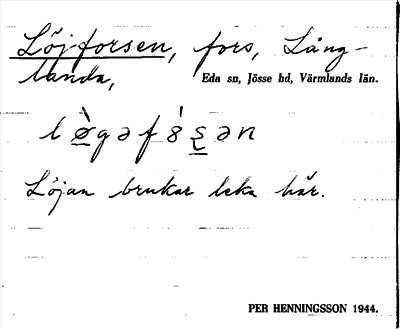 Löjforsen, fors, Lång-
landa, Eda sn, Jösse hd, Värmlands län.
l ø̀ g ə f 8̍ s̨ ə n
Löjan brukar leka här.
PER HENNINGSSON 1944.